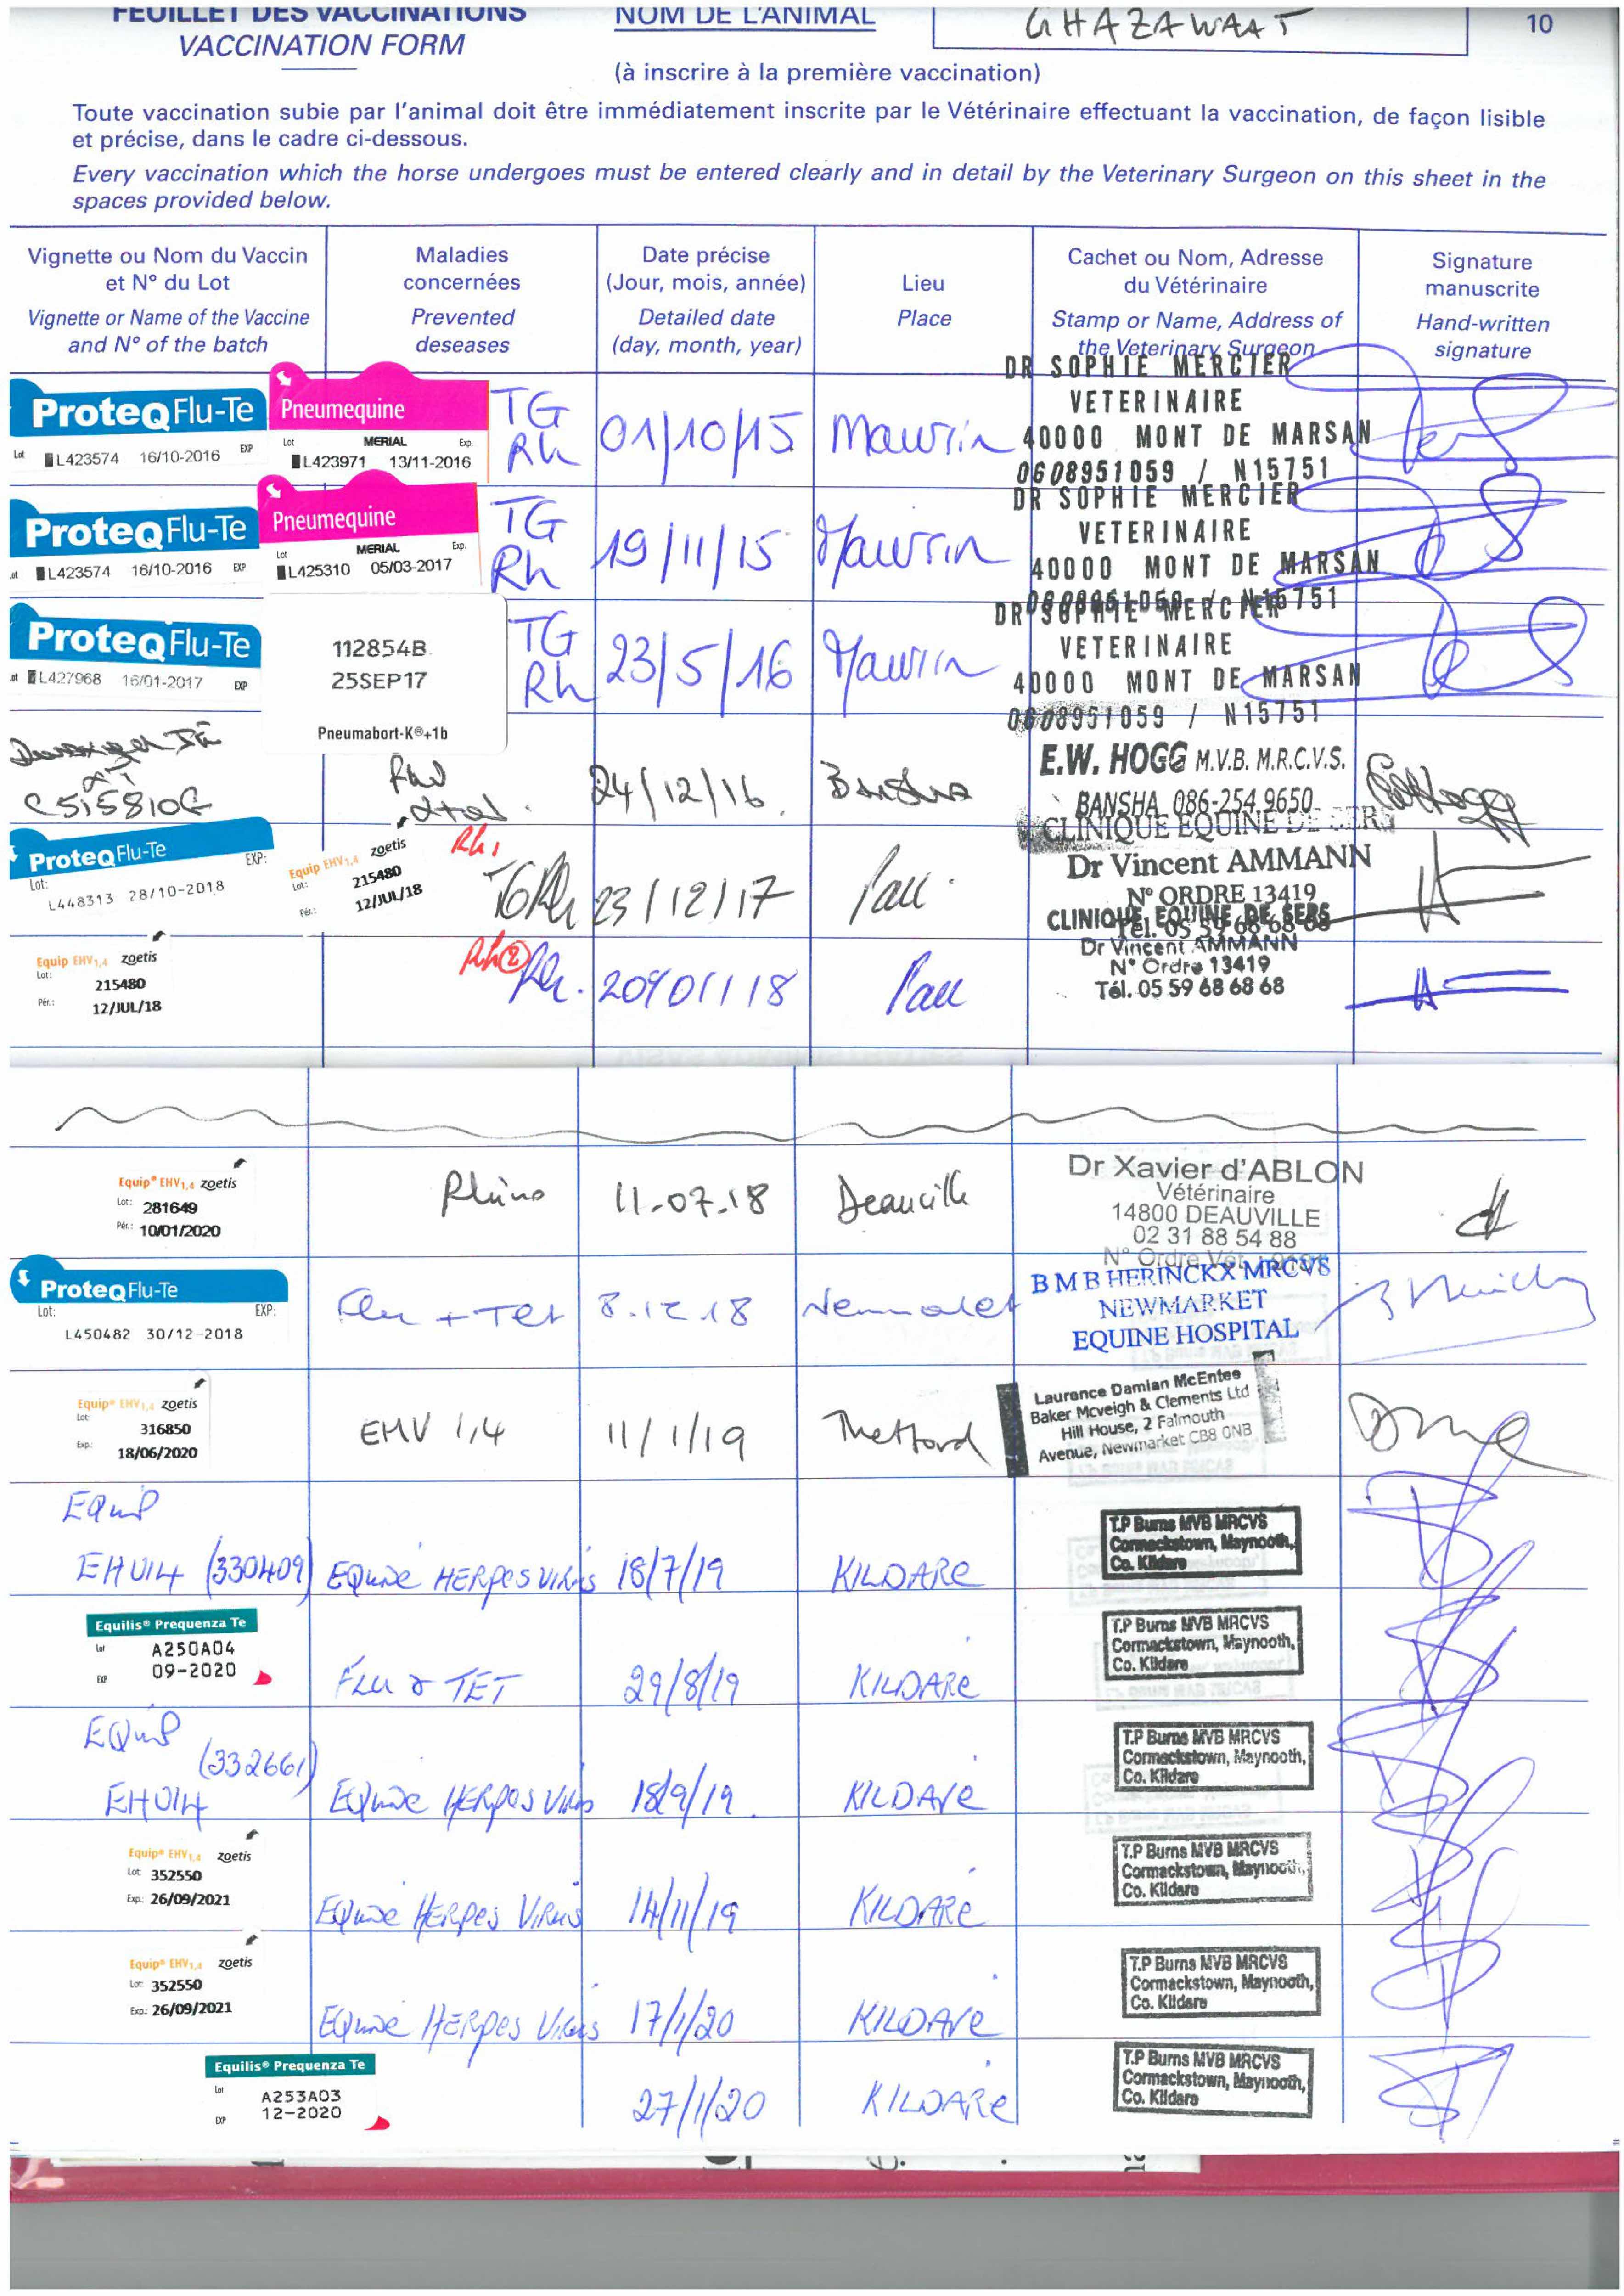 FEUILLET DES VACCINATIONS
VACCINATION FORM
NOM DE L'ANIMAL
GHAZAWAAT
10
(à inscrire à la première vaccination)
Toute vaccination subie par l'animal doit être immédiatement inscrite par le Vétérinaire effectuant la vaccination, de façon lisible
et précise, dans le cadre ci-dessous.
Every vaccination which the horse undergoes must be entered clearly and in detail by the Veterinary Surgeon on this sheet in the
spaces provided below.
Vignette ou Nom du Vaccin
et N° du Lot
Vignette or Name of the Vaccine
and N° of the batch
Maladies
concernées
Prevented
deseases
Date précise
(Jour, mois, année)
Detailed date
(day, month, year)
Lieu
Place
Cachet ou Nom, Adresse
du Vétérinaire
Stamp or Name, Address of
the Veterinary Surgeon
Signature
manuscrite
Hand-written
signature
ProteqFlu-Te
Lot L423574 16/10-2016 EXP
Pneumequine
Lot MERIAL Exp.
L423971 13/11-2016
TG
Rh
01/10/15
Maurrin
DR SOPHIE MERCIER
VETERINAIRE
40000 MONT DE MARSAN
0608951059 / N15751
ProteqFlu-Te
L423574 16/10-2016 EXP
Pneumequine
Lot MERIAL Exp.
L425310 05/03-2017
TG
Rh
19/11/15
Maurrin
DR SOPHIE MERCIER
VETERINAIRE
40000 MONT DE MARSAN
0608951059 / N15751
ProteqFlu-Te
L427968 16/01-2017 EXP
112854B
25SEP17
Pneumabort-K®+1b
TG
Rh
23/5/16
Maurrin
DR SOPHIE MERCIER
VETERINAIRE
40000 MONT DE MARSAN
0608951059 / N15751
C515810G
24/12/16
Bansha
E.W. HOGG M.V.B. M.R.C.V.S.
BANSHA 086-254 9650
ProteqFlu-Te
Lot: EXP:
L448313 28/10-2018
Equip EHV1,4 zoetis
Lot: 215480
Pér.: 12/JUL/18
Rh1
TGRh
23/12/17
Pau
CLINIQUE EQUINE DE SERS
Dr Vincent AMMANN
N° ORDRE 13419
Tél. 05 59 68 68 68
Equip EHV1,4 zoetis
Lot: 215480
Pér.: 12/JUL/18
Rh2
Rh.
20/01/18
Pau
CLINIQUE EQUINE DE SERS
Dr Vincent AMMANN
N° Ordre 13419
Tél. 05 59 68 68 68
Equip® EHV1,4 zoetis
Lot: 281649
Pér.: 10/01/2020
Rhino
11-07-18
Deauville
Dr Xavier d'ABLON
Vétérinaire
14800 DEAUVILLE
02 31 88 54 88
N° Ordre Vét.
ProteqFlu-Te
Lot: EXP:
L450482 30/12-2018
Flu + Tet
8.12.18
Newmarket
B M B HERINCKX MRCVS
NEWMARKET
EQUINE HOSPITAL
Equip® EHV1,4 zoetis
Lot: 316850
Exp.: 18/06/2020
EHV 1,4
11/1/19
Thetford
Laurence Damian McEntee
Baker Mcveigh & Clements Ltd
Hill House, 2 Falmouth
Avenue, Newmarket CB8 0NB
Equip
EHV14 (330409)
Equine HERPES VIRUS
18/7/19
KILDARE
T.P Burns MVB MRCVS
Cormackstown, Maynooth,
Co. Kildare
Equilis® Prequenza Te
Lot A250A04
EXP 09-2020
FLU & TET
29/8/19
KILDARE
T.P Burns MVB MRCVS
Cormackstown, Maynooth,
Co. Kildare
Equip
(332661)
EHV14
Equine HERPES VIRUS
18/9/19
KILDARE
T.P Burns MVB MRCVS
Cormackstown, Maynooth,
Co. Kildare
Equip® EHV1,4 zoetis
Lot: 352550
Exp.: 26/09/2021
Equine HERPES VIRUS
14/11/19
KILDARE
T.P Burns MVB MRCVS
Cormackstown, Maynooth,
Co. Kildare
Equip® EHV1,4 zoetis
Lot: 352550
Exp.: 26/09/2021
Equine HERPES VIRUS
17/1/20
KILDARE
T.P Burns MVB MRCVS
Cormackstown, Maynooth,
Co. Kildare
Equilis® Prequenza Te
Lot A253A03
EXP 12-2020
27/1/20
KILDARE
T.P Burns MVB MRCVS
Cormackstown, Maynooth,
Co. Kildare